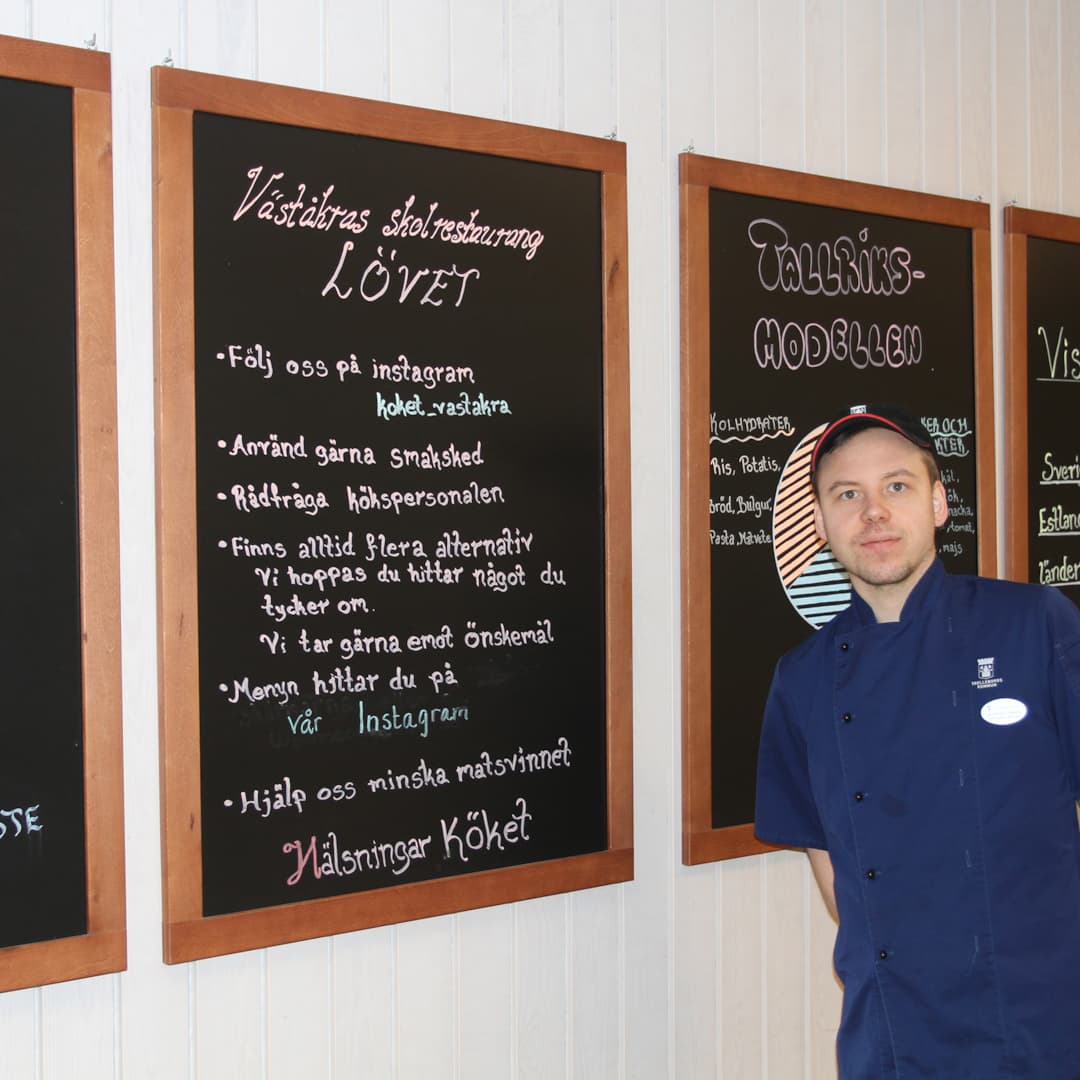 STE
Väståkras skolrestaurang
LÖVET
•Följ oss på instagram
koket_vastakra
•Använd gärna smaksked
•Rådfråga kökspersonalen
•Finns alltid flera alternativ
Vi hoppas du hittar något du
tycker om.
Vi tar gärna emot önskemål
•Menyn hittar du på
vår Instagram
•Hjälp oss minska matsvinnet
Hälsningar Köket
TALLRIKS-
MODELLEN
KOLHYDRATER
Ris, Potatis,
Bröd, Bulgur,
Pasta, Matvete
OCH
majs
Vis
Sveri
Estlan
länder
TRELLEBORGS
KOMMUN